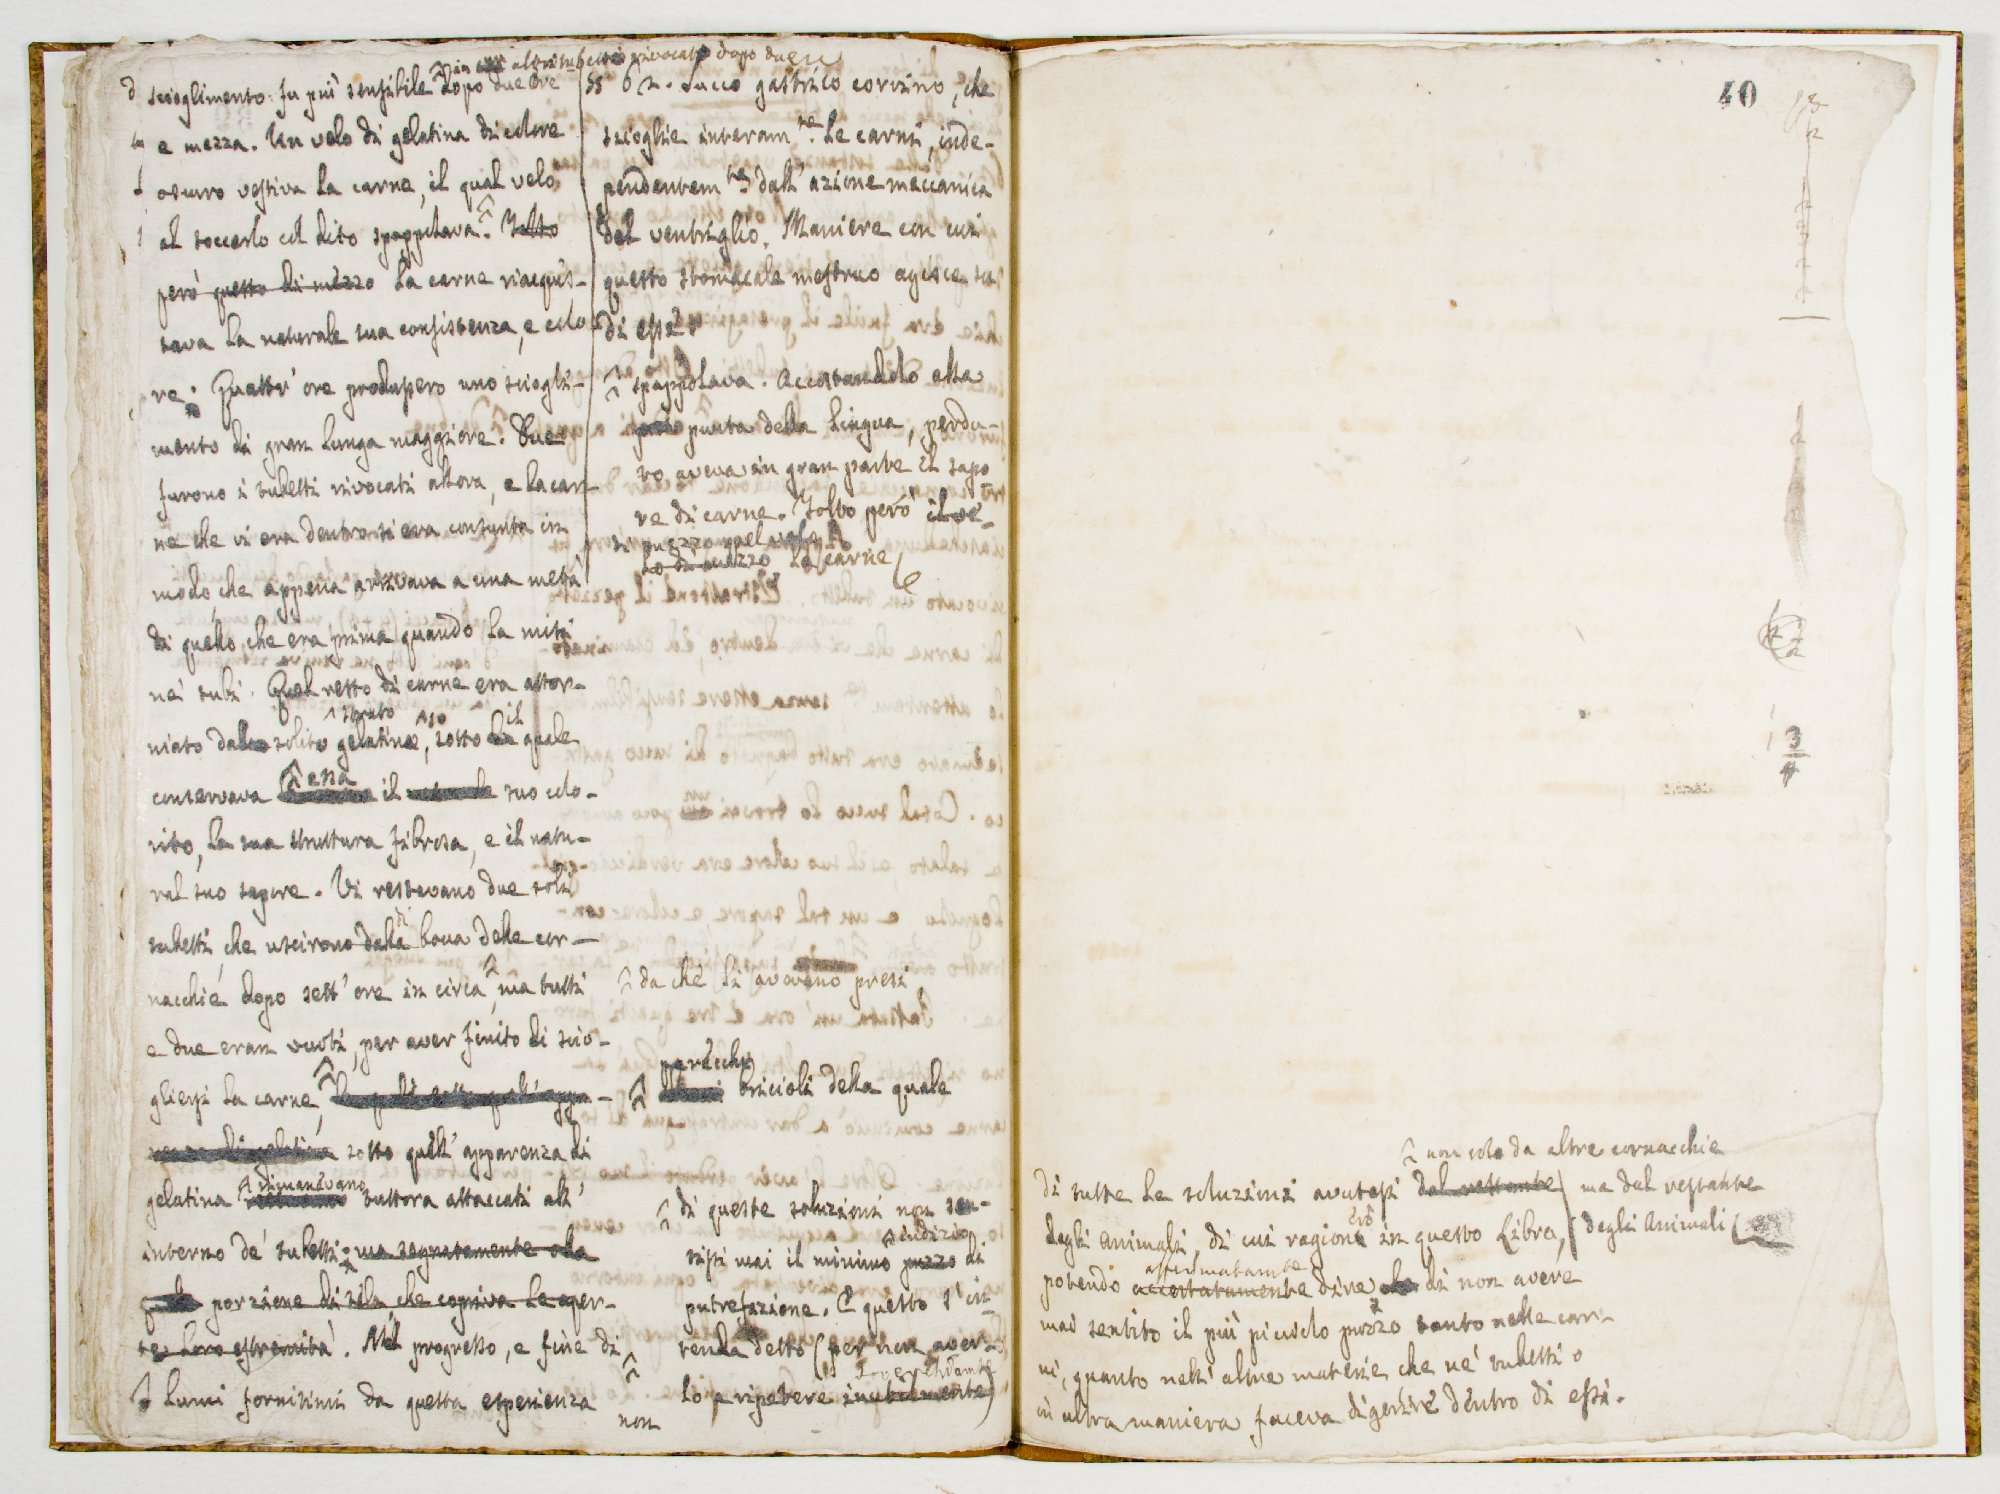 in altri tubetti rivocati dopo due
scioglimento fu più sensibile dopo due ore
e mezza. Un velo di gelatina di colore
oscuro vestiva la carne, il qual velo
al toccarlo col dito spappolava. Tolto
però questo di mezzo la carne riacquis-
tava la naturale sua consistenza, e colo
re. Quattr' ore produssero uno sciogli-
mento di gran lunga maggiore. Due
furono i tubetti rivocati allora, e la car-
ne che vi era dentro si era consunta in
modo, che appena arrivava a una metà
di quello, che era prima quando la misi
ne' tubi. Quel resto di carne era attor-
niato dal solito strato gelatinoso, sotto il quale
conservava essa il suo colo-
rito, la sua struttura fibrosa, e il natu-
ral suo sapore. Vi restavano due soli
tubetti, che uscirono dalla bocca delle cor-
nacchie dopo sett' ore in circa, ma tutti
e due eran vuoti, per aver finito di scio-
gliersi la carne,
sotto quell' apparenza di
gelatina rimanevano tuttora attaccati all'
interno de' tubetti: ma segnatamente alla
porzione di tela, che copriva le aper-
te loro estremità. Nel progresso, e fine di
lumi fornitimi da questa esperienza
Succo gastrico corvino, che
scioglie interam.te le carni, inde-
pendentem.te dall' azione meccanica
del ventriglio. Maniera con cui
questo stomacale mestruo agisce su
di esse.
spappolava. Accostandolo alla
punta della lingua, perdu-
to aveva in gran parte il sapo
re di carne. Tolto però il ve-
lo di mezzo la carne
da che li avevano presi
parecchi
bricioli della quale
di queste soluzioni non sen-
indizio
tisti mai il minimo puzzo di
putrefazione. E questo s' in-
tenda detto (per non aver-
lo a ripetere inutilmente)
non
40
3
4
non solo da altre cornacchie
di tutte le soluzioni avutesi dal restante ma dal restante
degli Animali, di cui ragiono in questo Libro, degli Animali
potendo accertatamente dire di non avere
mai sentito il più picciolo puzzo tanto nelle car-
ni, quanto nell' altre materie che ne' tubetti o
in altra maniera faceva digerire dentro di essi.